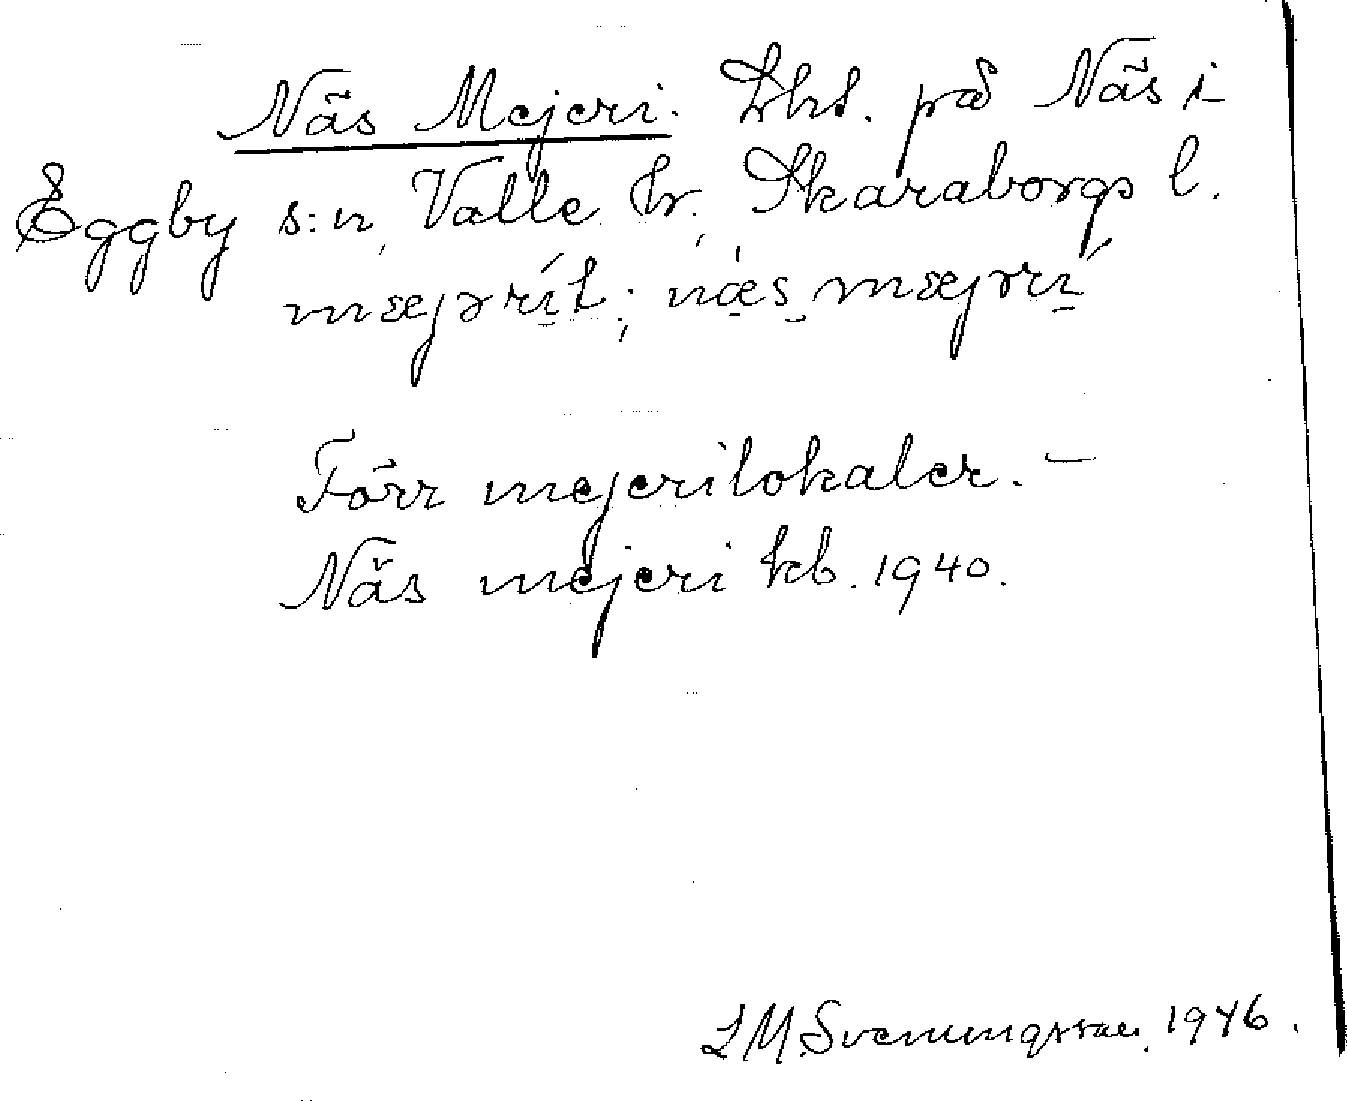 Näs Mejeri. Lht. på Näs i
Eggby s:n, Valle hr, Skaraborgs l.
mæjərít; næs mæjərí
Förr mejerilokaler. –
Näs mejeri kb. 1940.
L M Svenungsson. 1946.